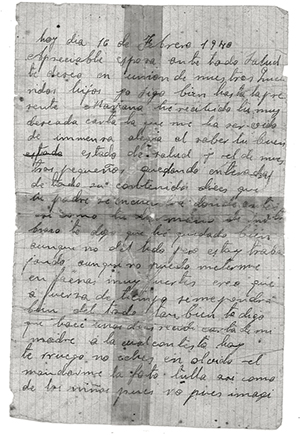 hoy dia 16 de Febrero 1940
Apreciable esposa ante todo salud
te deseo en union de nuestros queri
dos hijos yo sigo bien hasta la pre
sente he recibido tu muy
deseada carta la que me ha servido
de inmensa alegria el saber tu buen
estado estado de salud y el de nues
tros pequeños quedando enterado
de todo su contenido dices que
tu padre se
te digo que he quedado bien
aunque no del todo pero estoy traba
jando aunque no puedo meterme
en faenas muy fuertes creo que
a fuerza de tiempo se me pondra
bien del todo tambien te digo
que hace unos dias recibi carta de mi
madre a la cual contesto hoy
te ruego no eches en olvido el
mandarme la foto tulla asi como
de los niños pues no pues imagi